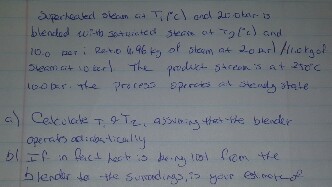 Superheated steam at T1(°C) and 20.0 bar is
blended with saturated steam at T2(°C) and
10.0 bar. Ratio 1.96 kg of steam at 20 bar/1.0 kg of
steam at 10 bar. The product stream is at 250°C
10.0 bar. The process operates at steady state
a) Calculate T1 & T2, assuming that the blender
operates adiabatically
b) If in fact heat is being lost from the
blender to the surroundings, is your estimate of